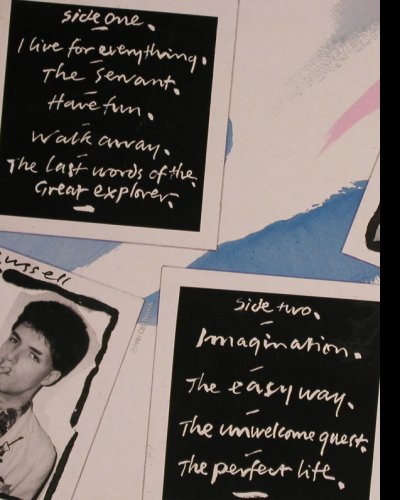 side one.
I live for everything.
The servant.
Have fun.
Walk away.
The last words of the
Great explorer.
ussell
side two.
Imagination.
The easy way.
The unwelcome guest.
The perfect life.